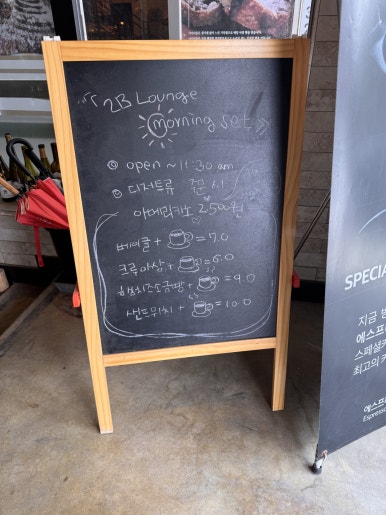 2B Lounge
morning set
open ~ 11:30 am
디저트류 주문 시
아메리카노 2,500원
베이글 + = 7.0
크루아상 + = 6.0
햄치즈소금빵 + = 9.0
샌드위치 + = 10.0
SPECIA
지금 방
에스프
스페셜
최고의 커
에스프
Espresso